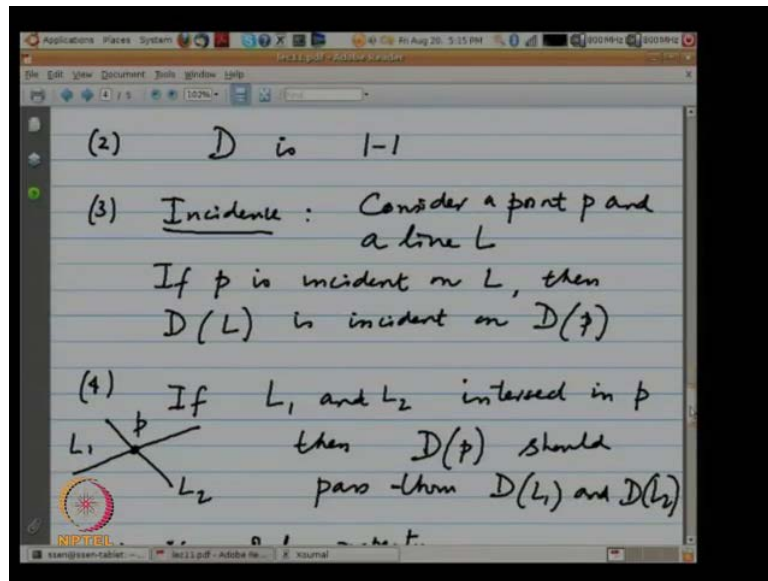 Applications Places System Fri Aug 20, 5:15 PM 800 MHz 800 MHz
lec11.pdf - Adobe Reader
File Edit View Document Tools Window Help
4 / 5 102% Find
(2) D is 1-1
(3) Incidence : Consider a point p and
a line L
If p is incident on L, then
D(L) is incident on D(p)
(4) If L1 and L2 intersect in p
p
L1 then D(p) should
L2 pass thru D(L1) and D(L2)
NPTEL
ssen@ssen-tablet: ~... lec11.pdf - Adobe Re... Xournal